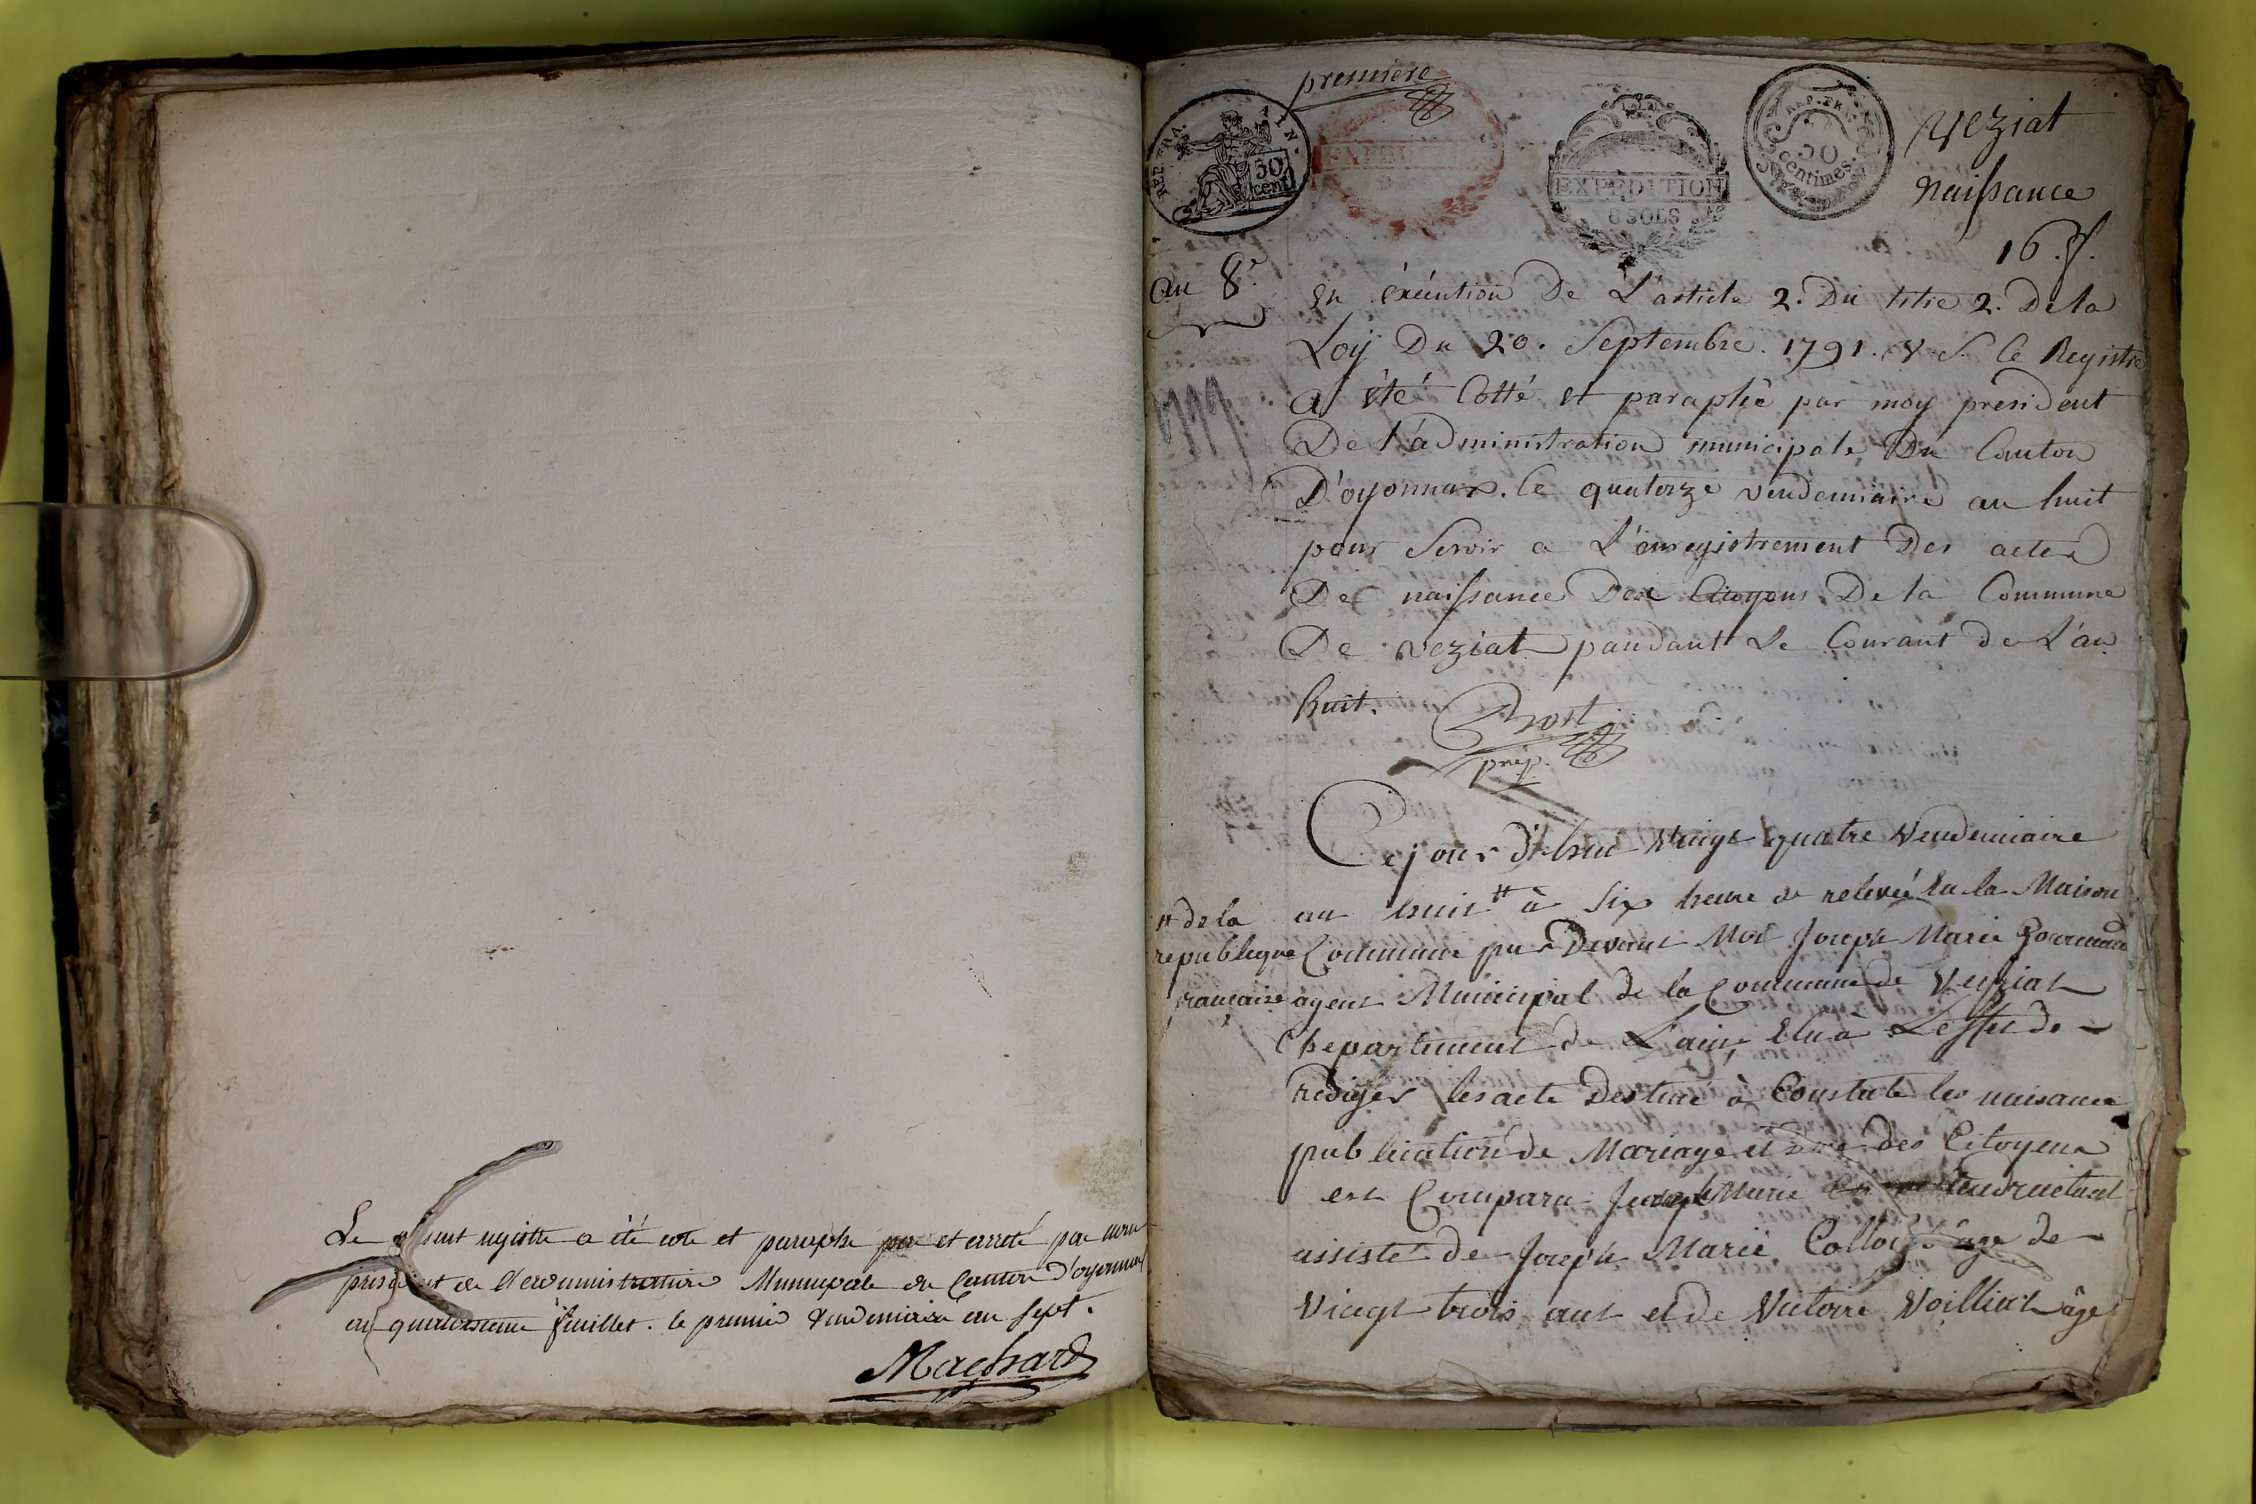 Le present registre a été coté et paraphé par et arreté par nous
president de l'administration Municipale du Canton d'oyonnax
au quatorzieme feuillet. le premier vendemiaire an sept.
Machard
premiere
REP. FRA.
50
cent
EXPEDITION
EXPEDITION
8 SOLS
REP. FR.
50
centimes.
veziat
naissance
16. f.
an 8.e
En éxécution De L'article 2. Du titre 2. De la
Loy Du 20. Septembre. 1791. Le Registre
a été Cotté et paraphé par moy president
De l'administration municipale Du Canton
D'oyonnax. le quatorze vendemiaire an huit
pour Servir a L'enregistrement Des actes
De naissance Des Citoyens De la Commune
De veziat pandant Le Courant de L'an
huit.
Prost
presid.
Cejour d'huit vingt quatre Vendemiaire
an huit # à Six heure de relevée En la Maison
# de la
republique
française
Commune par Devant Moi Joseph Marie
agent Municipal de la Commune de Veyziat
Departement de L'ain, Elu à Leffet de
rediger les acte Destiné à Constaté les naisance
publication de Mariage et des Citoyens
est Comparu Joseph Marie
assisté de Joseph Marie Colloz âge de
Vingt trois ans et de Victoire Voilliat âgé